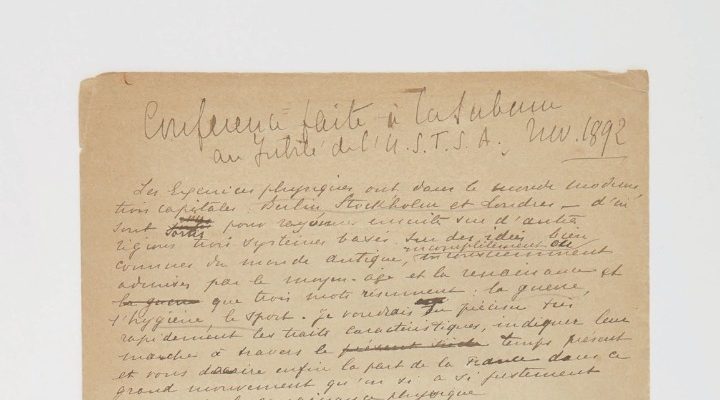 Conférence faite à la Sorbonne
au Jubilé de l'U.S.F.S.A. Nov. 1892
Les Exercices physiques ont dans le monde moderne
trois capitales: Berlin Stockholm et Londres — d'où
sont pour rayonner ensuite sur d'autres
régions trois systèmes basés sur des idées bien
connues du monde antique, incomplètement et
admises par le moyen-age et la renaissance et
la guerre que trois mots résument: la guerre,
l'hygiène, le sport. Je voudrais en préciser très
rapidement les traits caractéristiques, indiquer leur
marche à travers le présent siècle temps présent
et vous enfin la part de la France dans ce
grand mouvement qu'on a si justement
renaissance physique